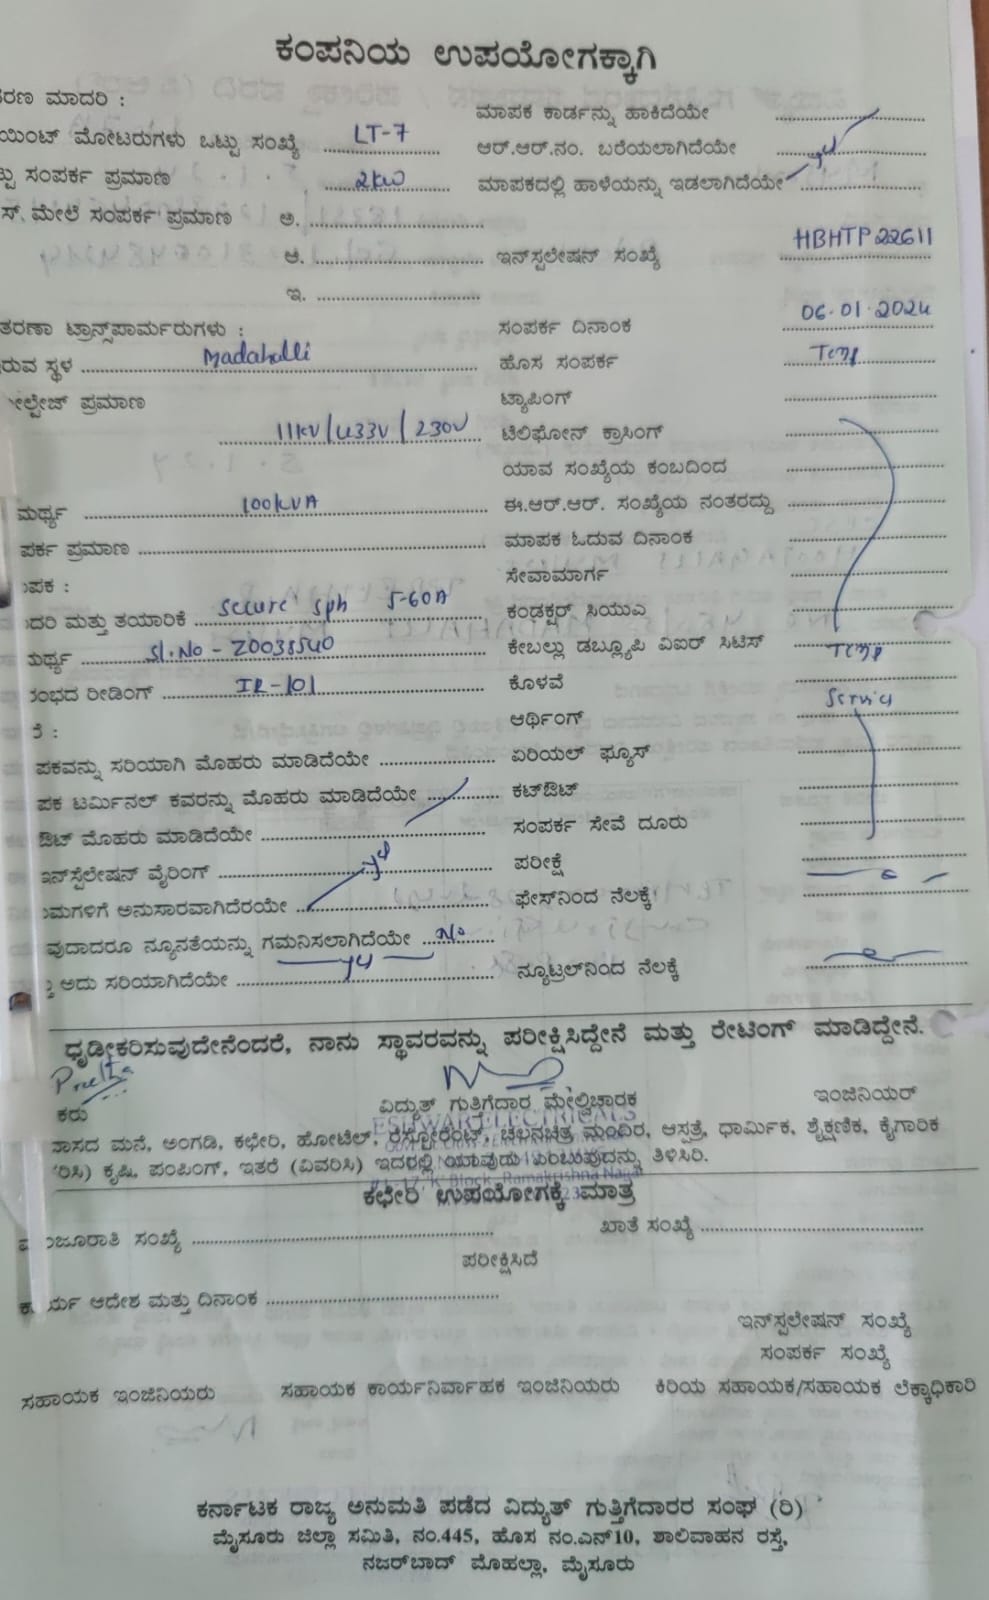 ಕಂಪನಿಯ ಉಪಯೋಗಕ್ಕಾಗಿ
ರಣ ಮಾದರಿ :
ಮಾಪಕ ಕಾರ್ಡನ್ನು ಹಾಕಿದೆಯೇ
ಯಿಂಟ್ ಮೋಟರುಗಳು ಒಟ್ಟು ಸಂಖ್ಯೆ LT-7
ಆರ್.ಆರ್.ನಂ. ಬರೆಯಲಾಗಿದೆಯೇ
ಸಂಪರ್ಕ ಪ್ರಮಾಣ 2kw
ಮಾಪಕದಲ್ಲಿ ಹಾಳೆಯನ್ನು ಇಡಲಾಗಿದೆಯೇ
ಸ್. ಮೇಲೆ ಸಂಪರ್ಕ ಪ್ರಮಾಣ ಅ.
ಆ. ಇನ್‌ಸ್ಟಲೇಷನ್ ಸಂಖ್ಯೆ HBHTP22611
ಇ.
ತರಣಾ ಟ್ರಾನ್ಸ್‌ಪಾರ್ಮರುಗಳು :
ಸಂಪರ್ಕ ದಿನಾಂಕ 06.01.2024
ರುವ ಸ್ಥಳ Madahalli
ಹೊಸ ಸಂಪರ್ಕ Temp
ಲ್ಟೇಜ್ ಪ್ರಮಾಣ
ಟ್ಯಾಪಿಂಗ್
11kV/433V/230V
ಟೆಲಿಫೋನ್ ಕ್ರಾಸಿಂಗ್
ಯಾವ ಸಂಖ್ಯೆಯ ಕಂಬದಿಂದ
ಮರ್ಥ್ಯ 100kVA
ಈ.ಆರ್.ಆರ್. ಸಂಖ್ಯೆಯ ನಂತರದ್ದು
ಪರ್ಕ ಪ್ರಮಾಣ
ಮಾಪಕ ಓದುವ ದಿನಾಂಕ
ಪಕ :
ಸೇವಾಮಾರ್ಗ
ದರಿ ಮತ್ತು ತಯಾರಿಕೆ Secure Sph 5-60A
ಕಂಡಕ್ಟರ್ ಸಿಯುಎ
ಮರ್ಥ್ಯ Sl.No - Z0038540
ಕೇಬಲ್ಲು ಡಬ್ಲ್ಯೂಪಿ ವಿಐರ್ ಸಿಟಿಸ್ Temp
ಂಭದ ರೀಡಿಂಗ್ IR-101
ಕೊಳವೆ
ಆರ್ಥಿಂಗ್ Service
ಪಕವನ್ನು ಸರಿಯಾಗಿ ಮೊಹರು ಮಾಡಿದೆಯೇ
ಏರಿಯಲ್ ಫ್ಯೂಸ್
ಪಕ ಟರ್ಮಿನಲ್ ಕವರನ್ನು ಮೊಹರು ಮಾಡಿದೆಯೇ
ಕಟ್‌ಔಟ್
ಔಟ್ ಮೊಹರು ಮಾಡಿದೆಯೇ
ಸಂಪರ್ಕ ಸೇವೆ ದೂರು
ಇನ್‌ಸ್ಟೆಲೇಷನ್ ವೈರಿಂಗ್
ಪರೀಕ್ಷೆ
ಮಗಳಿಗೆ ಅನುಸಾರವಾಗಿದೆರಯೇ
ಫೇಸ್‌ನಿಂದ ನೆಲಕ್ಕೆ
ವುದಾದರೂ ನ್ಯೂನತೆಯನ್ನು ಗಮನಿಸಲಾಗಿದೆಯೇ No
ಅದು ಸರಿಯಾಗಿದೆಯೇ
ನ್ಯೂಟ್ರಲ್‌ನಿಂದ ನೆಲಕ್ಕೆ
ಧೃಡೀಕರಿಸುವುದೇನೆಂದರೆ, ನಾನು ಸ್ಥಾವರವನ್ನು ಪರೀಕ್ಷಿಸಿದ್ದೇನೆ ಮತ್ತು ರೇಟಿಂಗ್ ಮಾಡಿದ್ದೇನೆ.
ಕರು ವಿದ್ಯುತ್ ಗುತ್ತಿಗೆದಾರ ಮೇಲ್ವಿಚಾರಕ ಇಂಜಿನಿಯರ್
ESHWAR ELECTRICALS
ವಾಸದ ಮನೆ, ಅಂಗಡಿ, ಕಛೇರಿ, ಹೋಟೆಲ್, ರೆಸ್ಟೋರೆಂಟ್, ಚಲನಚಿತ್ರ ಮಂದಿರ, ಆಸ್ಪತ್ರೆ, ಧಾರ್ಮಿಕ, ಶೈಕ್ಷಣಿಕ, ಕೈಗಾರಿಕ
ರಿಸಿ) ಕೃಷಿ, ಪಂಪಿಂಗ್, ಇತರೆ (ವಿವರಿಸಿ) ಇದರಲ್ಲಿ ಯಾವುದು ಎಂಬುವುದನ್ನು ತಿಳಿಸಿರಿ.
K Block, Ramakrishna Nagar
ಕಛೇರಿ ಉಪಯೋಗಕ್ಕೆ ಮಾತ್ರ
ಮಂಜೂರಾತಿ ಸಂಖ್ಯೆ
ಖಾತೆ ಸಂಖ್ಯೆ
ಪರೀಕ್ಷಿಸಿದೆ
ಆದೇಶ ಮತ್ತು ದಿನಾಂಕ
ಇನ್‌ಸ್ಟಲೇಷನ್ ಸಂಖ್ಯೆ
ಸಂಪರ್ಕ ಸಂಖ್ಯೆ
ಸಹಾಯಕ ಇಂಜಿನಿಯರು ಸಹಾಯಕ ಕಾರ್ಯನಿರ್ವಾಹಕ ಇಂಜಿನಿಯರು ಕಿರಿಯ ಸಹಾಯಕ/ಸಹಾಯಕ ಲೆಕ್ಕಾಧಿಕಾರಿ
ಕರ್ನಾಟಕ ರಾಜ್ಯ ಅನುಮತಿ ಪಡೆದ ವಿದ್ಯುತ್ ಗುತ್ತಿಗೆದಾರರ ಸಂಘ (ರಿ)
ಮೈಸೂರು ಜಿಲ್ಲಾ ಸಮಿತಿ, ನಂ.445, ಹೊಸ ನಂ.ಎನ್10, ಶಾಲಿವಾಹನ ರಸ್ತೆ,
ನಜರ್‌ಬಾದ್ ಮೊಹಲ್ಲಾ, ಮೈಸೂರು